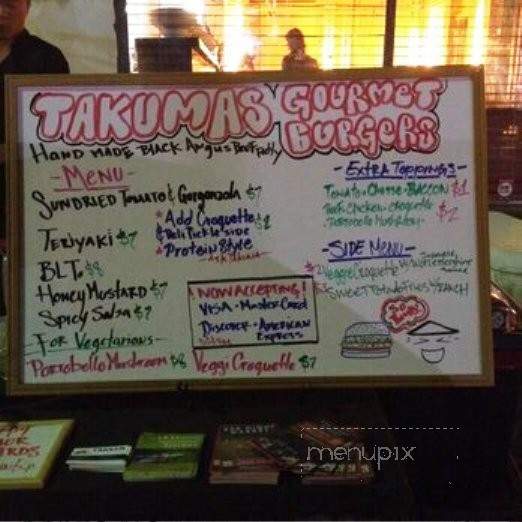 TAKUMAS GOURMET BURGERS
HAND MADE BLACK Angus Beef Patty
- MENU -
SUNDRIED TOMATO & Gorgonzola $7
TERIYAKI $7
BLT. $8
Honey MUSTARD $7
Spicy Salsa $7
* Add Croquette $2
& Deli Pickle side
* Protein Style
- For Vegetarians -
Portobello Mushroom $8
Veggi Croquette $7
! NOW ACCEPTING !
VISA - MasterCard
Discover - American
Express
- EXTRA TOPPINGS -
Tomato - Cheese - BACON $1
Chicken croquette
Portobello Mushroom $2
- SIDE MENU -
Veggie Croquette
SWEET POTATO FRIES
menupix